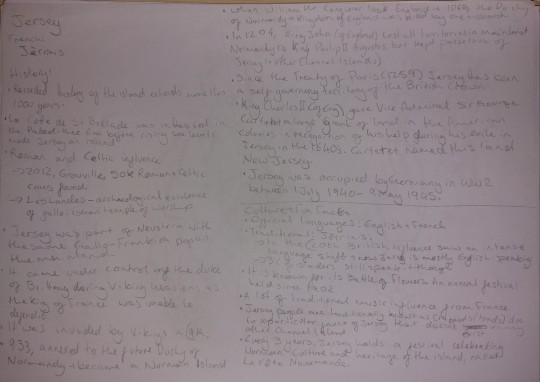 Jersey
French:
Jèrriais
History:
• Recorded history of the island extends more than
1000 years.
• La Cotte de St Brelade was inhabited in
the Palaeolithic Era before rising sea levels
made Jersey an island
• Roman and Celtic influence
→ 2012, Grouville, 50k Roman + Celtic
coins found
→ Les Landes - archaeological evidence
of gallo-roman temple of worship
• Jersey was part of Neustria with
the same Gallo-Frankish
the mainland
• It came under control of the duke
of Brittany during Viking invasions as
the king of France was unable to
defend it
It was invaded by Vikings in
• 933, annexed to the future Duchy of
Normandy + became a Norman Island
• When William the Conqueror took England in 1066, the Duchy
of Normandy + Kingdom of England was ruled by one monarch
• In 1204, King John (of England) lost all territories in mainland
Normandy to King Philip II but kept possession of
Jersey + other Channel Islands
• Since the Treaty of Paris (1259) Jersey has been
a self governing territory of the British Crown
• King Charles II (of Eng), gave Vice Admiral Sir George
Carteret a large grant of land in the American
Colonies in recognition of his help during his exile in
Jersey in the 1640s. Carteret named this land
New Jersey.
• Jersey was occupied by Germany in WW2
between 1 July 1940 - 9 May 1945.
Culture + Facts
• Official Languages: English + French
• Traditional: Jèrriais
→ In the 20th British influence saw an intense
language shift + now Jersey is mostly English-speaking
→ 3% of islanders still speak
• It is known for its Battle of Flowers, an annual festival
held since 1902
• A lot of traditional music influence from France
Jersey people are
a particular flower of Jersey that doesn't
other Channel Island
• Every 3 years, Jersey holds a festival celebrating
Norman culture and heritage of the island, called
La Fête Nouormande.